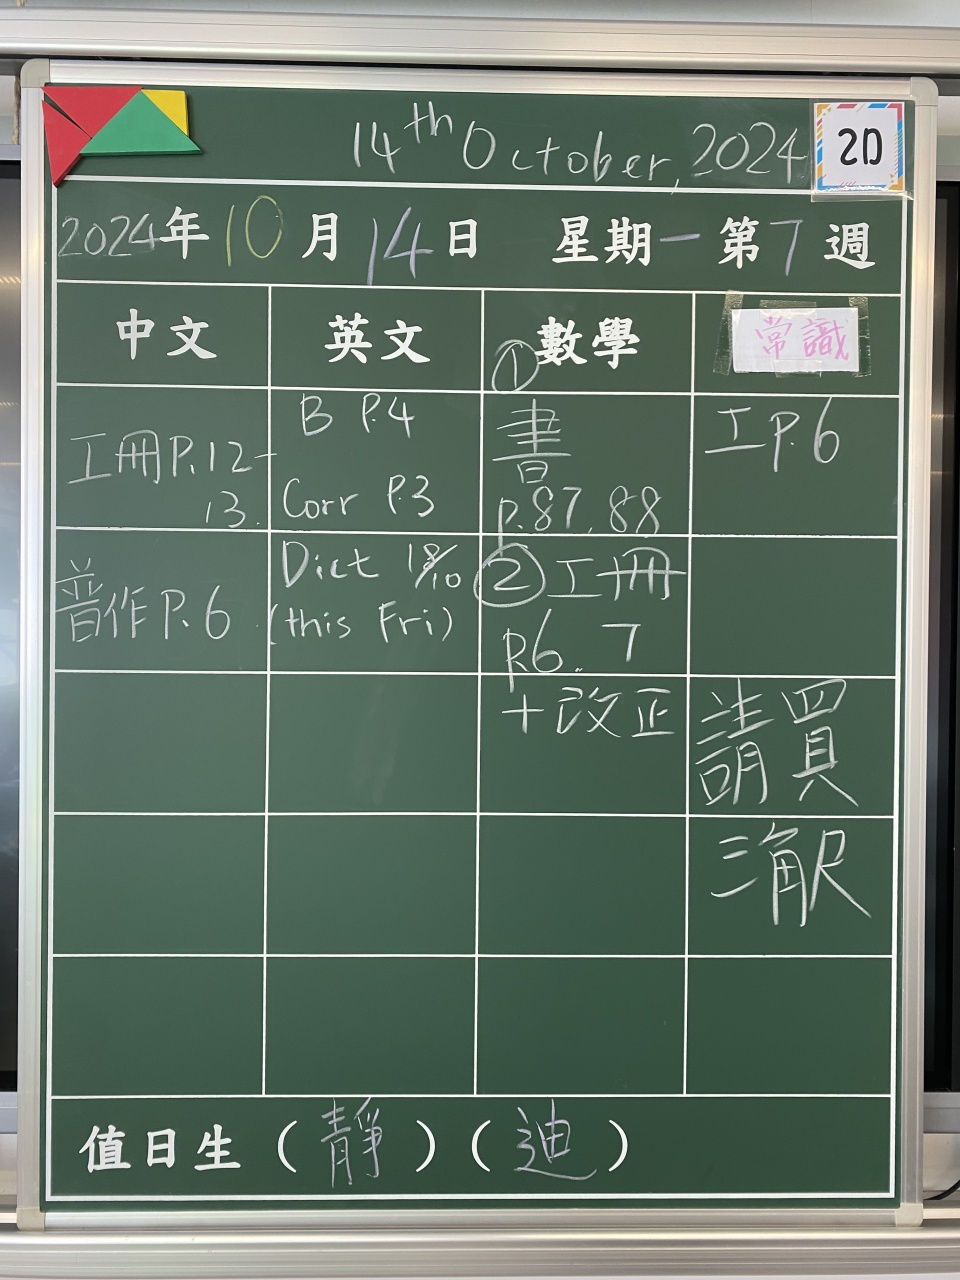 14th October, 2024
2D
2024年10月14日 星期一 第7週
中文
英文
數學
常識
工冊P.12-
13.
B P.4
Corr P.3
①
書
P.87, 88
工P.6
普作P.6
Dict 18/10
(this Fri)
②工冊
P.6, 7
+改正
請買
三角尺
值日生(靜)(迪)